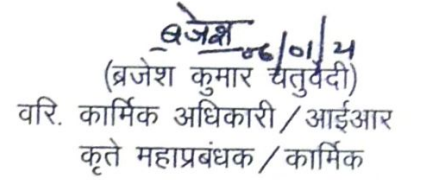 ब्रजेश
06/01/21
(ब्रजेश कुमार चतुर्वेदी)
वरि. कार्मिक अधिकारी / आईआर
कृते महाप्रबंधक / कार्मिक